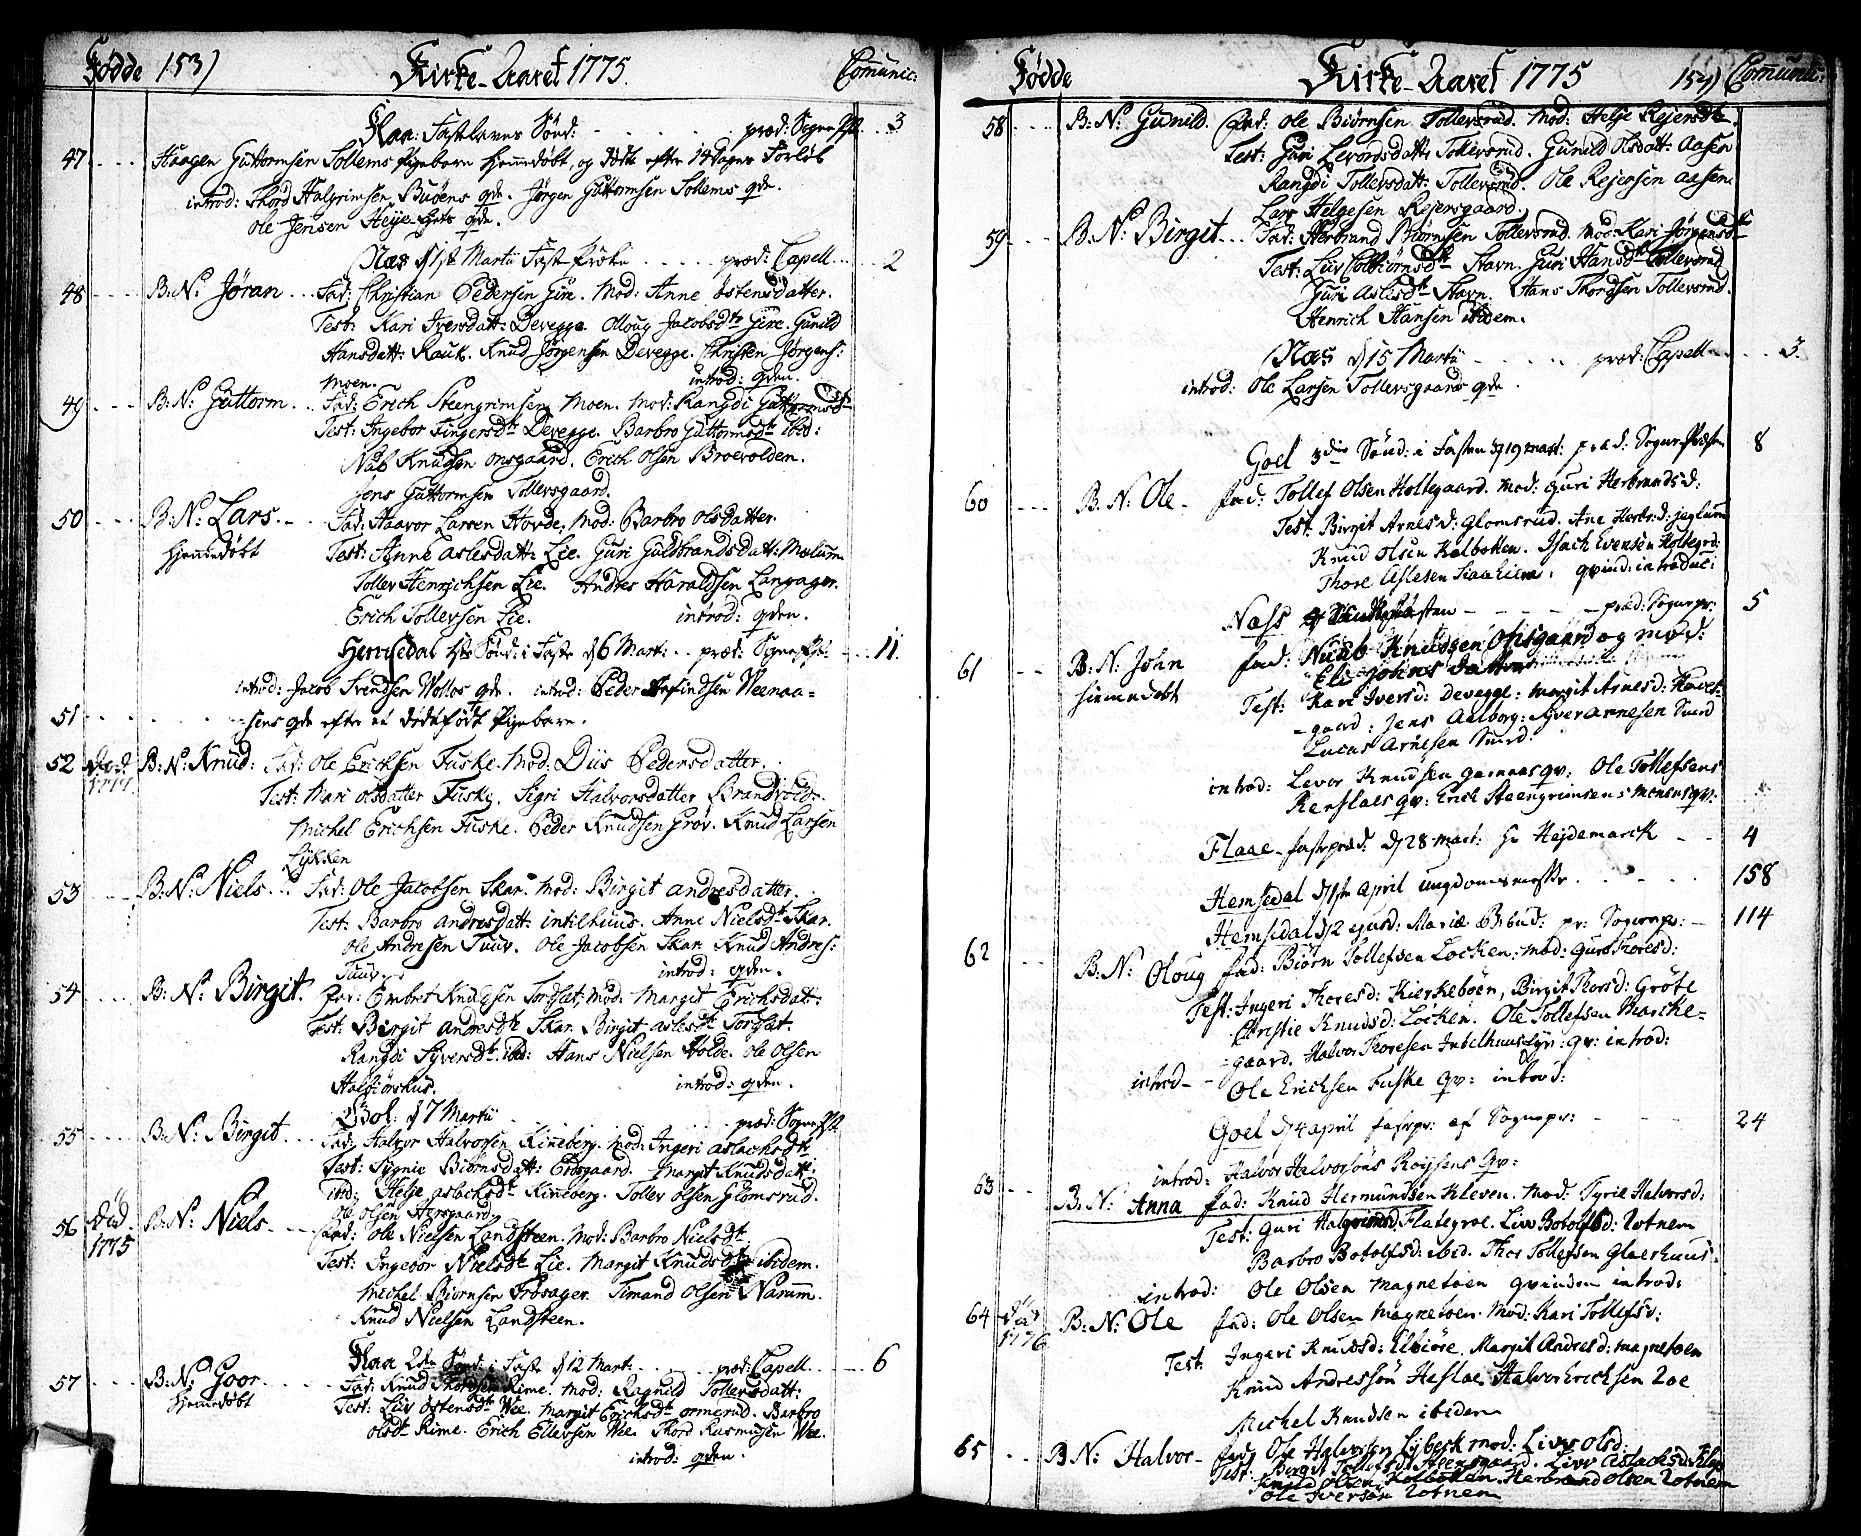 Fødde 153) Kirke-Aaret 1775. Comunic:
Flaa: Fastlavns Sønd: præd: Sogne Pst 3
47 Haagen Guttormsen Sollems Pigebarn hjemedøbt, og døde efter 14 Dages Forløb
introd: Thord Halgrimsen Buøens qde. Jørgen Guttormsen Sollems qde.
Ole Jensen Heje qde.
Næs d 1ste Martii præd: Capell 2
48 B: N: Jøran Fad: Christian Pedersen Gire. Mod: Anne Ostensdatter.
Test: Kari Iversdatt: Devegge Olloug Jacobsdtr Gire. Gunild
Hansdatt: Rauk. Knud Jørgensen Devegge. Christen Jørgens:
Moen. introd: qden.
49 B: N: Guttorm Fad: Erich Steengrimsen Moen. Mod: Rangdi Guttormsdtr
Test: Ingebor Fingersdtr Devegge. Barbro Guttormsdtr ibid:
Nub Knudsen Onsgaard. Erich Olsen Broevolden.
Jens Guttormsen Tollevsgaard.
50 B: N: Lars Fad: Haavor Larsen Hovde. Mod: Barbro Olsdatter.
hjemedøbt Test: Anne Aslesdatt: Lie. Guri Guldbrandsdatt: Mælum
Tollev Henrichsen Lie. Andres Haraldsen Langager.
Erich Tollevsen Lie. introd: qden.
Hemsedal 1ste Sønd: i Faste d 6 Mart: præd: Sogne Pst: 11
introd: Jacob Svendsen Wollos qde. introd: Peder Weenaa=
51 sens qde efter et dødfødt Pigebarn.
52 Død 1777 B: N: Knud: Fad: Ole Erichsen Fuske. Mod: Diis Pedersdatter.
Test: Mari Olsdatter Fuske. Sigri Halvorsdatter Brandvold.
Michel Erichsen Fuske. Peder Knudsen Grøv. Knud Larsen
Lykken
53 B: N: Niels Fad: Ole Jacobsen Skar. Mod: Birgit Andresdatter.
Test: Barbro Andresdatt: intilhuus. Anne Nielsdtr Skar.
Ole Andresen Tuuv. Ole Jacobsen Skar. Knud Andres:
Tuuv introd: qden.
54 B: N: Birgit. Fad: Embret Knudsen Torset. Mod: Margit Erichsdatt:
Test: Birgit Andresdtr Skar. Birgit Aslesdtr Torset.
Rangdi Syversdtr ibid: Hans Nielsen Holde. Ole Olsen
introd: qden.
Gol: d 7 Martii præd: Sogne Pst
55 B: N: Birgit Fad: Halvor Halvorsen Kinneberg. Mod: Ingeri Aslachsdtr
Test: Sygnie Biørnsdatt: Engaard. Margit Knudsdatt:
ibid: Helje Aslachsdtr Kinneberg. Tollev Olsen Glomsrud.
Ole Olsen
56 Død 1775 B: N: Niels Fad: Ole Nielsen Landsteen. Mod: Barbro Nielsdtr.
Test: Ingebor Nielsdtr Lie. Margit Knudsdtr ibidem.
Michel Biørnsen Frøsager. Timand Olsen Narum.
Knud Nielsen Landsteen.
Flaa 2den Sønd: i Faste d 12 Mart: præd: Capell 6
57 B: N: Goor Fad: Knud Thordsen Rime. Mod: Ragnild Tollevsdatt:
hjemedøbt Test: Liiv Ostensdtr Wee. Margit Erichsdtr Ormerud. Barbro
Olsdtr Rime. Erich Ellevsen Wee. Thord Rasmusen Wee.
introd: qden.
Fødde Kirke-Aaret 1775 154) Comunic:
58 B: N: Gunild. Fad: Ole Biørnsen Tollevsrud. Mod: Helje Rejersdtr.
Test: Guri Levordsdatt: Tollevsrud. Gunild Olsdatt: Aasen
Rangdi Tollevsdatt: Tollevsrud. Ole Rejersen Aasen.
Lars Helgesen Rejersgaard.
59 B: N: Birgit Fad: Herbrand Biørnsen Tollevsrud. Mod: Kari Jørgensdtr
Test: Liiv Colbiørnsdtr Stavn. Guri Hansdtr Tollevsrud
Guri Aslesdtr Stavn. Hans Thordsen Tollevsrud.
Henrich Hansen ibidem.
Næs d 15 Martii præd: Capell 3.
introd: Ole Larsen Tollevsgaards qde.
Goel 3die Sønd: i Fasten d 19 Mart: præd: Sogne Præsten 8
60 B: N: Ole fad: Tollef Olsen Holtegaard. Mod: Guri Herbrandsd:
Test: Birgit Arnesd: Glomsrud. Ane Herbr:d:
Knud Olsen Kolbotten. Isach Evensen Holtegrd:
Thore Aslesen qvind: introduc:
Næss præd: Sognepr: 5
61 B: N: John fad: Nuub Knudsen Onsgaard og Mod:
hiemedøbt Eli Johns datter
Test: Kari Iversd: Devegge: Margit Arnesd:
-gaard: Jens Aalborg: Syver Arnesen Sund
Lucas Arnesen Sund.
introd: Levor Knudsen Gamnas qv: Ole Tollefsens
qv: Erik Steengrimsens Moens qv:
Flaae fastpræd: d 28 Mart: Hr Hejdemarck 4
Hemsedal d 1ste April ungdomsmøde 158
Hemsedal d 2 ejusd: Mariæ Bebud: pr: Sognepr: 114
62 B: N: Oloug fad: Biørn Tollefsen Locken: Mod: Guro Thoresd:
Test: Ingeri Thoresd: Kierkebøen, Birgit Thorsd: Grøte
Christie Knudsd: Løcken. Ole Tollefsen Marcke=
=gaard. Halvor Thoresen qv: introd:
introd Ole Erichsen Fuske qv: introd:
Goel d 4 April fastpr: af Sognepr: 24
introd: Halvor Halvorsøns Roysens qv:
63 B: N: Anna fad: Knud Hermundsen Kleven. Mod: Tyrie Halvorsd:
Test: Guri Halgrimsd: Flategroe. Liv Botolfsd: Rotnem
Barbro Botolfsd: ibid. Thor Tollefsen Glaerhuus.
introd: Ole Olsen Magnetøen qvinden introd:
64 Død 1776 B: N: Ole fad: Ole Olsen Magnetøen. Mod: Kari Tollefsd:
Test: Ingeri Knudsd: Ulsiøre. Margit Andresd: Magnetøen
Knud Andressøn Heslae. Halvor Ericksen Loe
Mickel Knudsen ibidem
65 B N: Halvor fad: Ole Halvorsen Lybeck Mod: Livv Olsd:
Test: Birgit Tollefsd: Livv Aslacksd:
Knud Olsen Kolbotten. Herbrand Olsen Rotnem
Ole Iversøn Rotnem